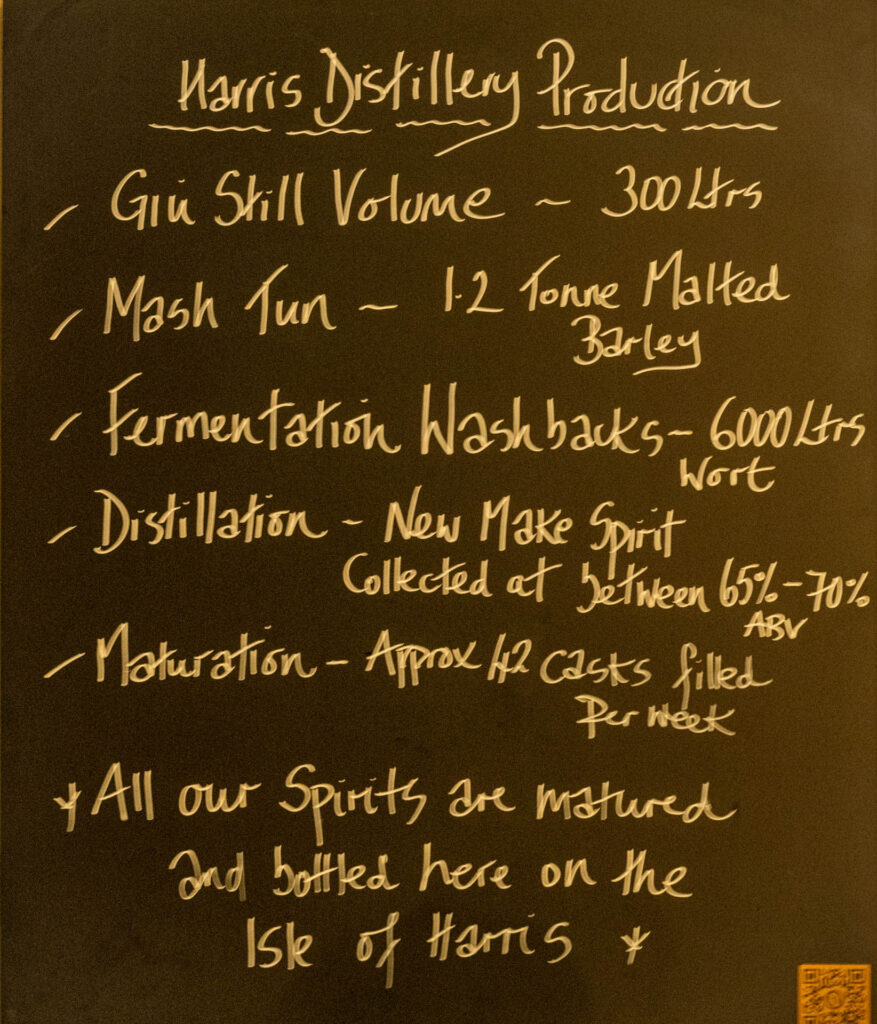 Harris Distillery Production
Gin Still Volume ~ 300 Ltrs
Mash Tun ~ 1.2 Tonne Malted
Barley
Fermentation Washbacks - 6000 Ltrs
Wort
Distillation - New Make Spirit
Collected at between 65% - 70%
ABV
Maturation - Approx 42 Casks filled
Per week
* All our Spirits are matured
and bottled here on the
Isle of Harris *